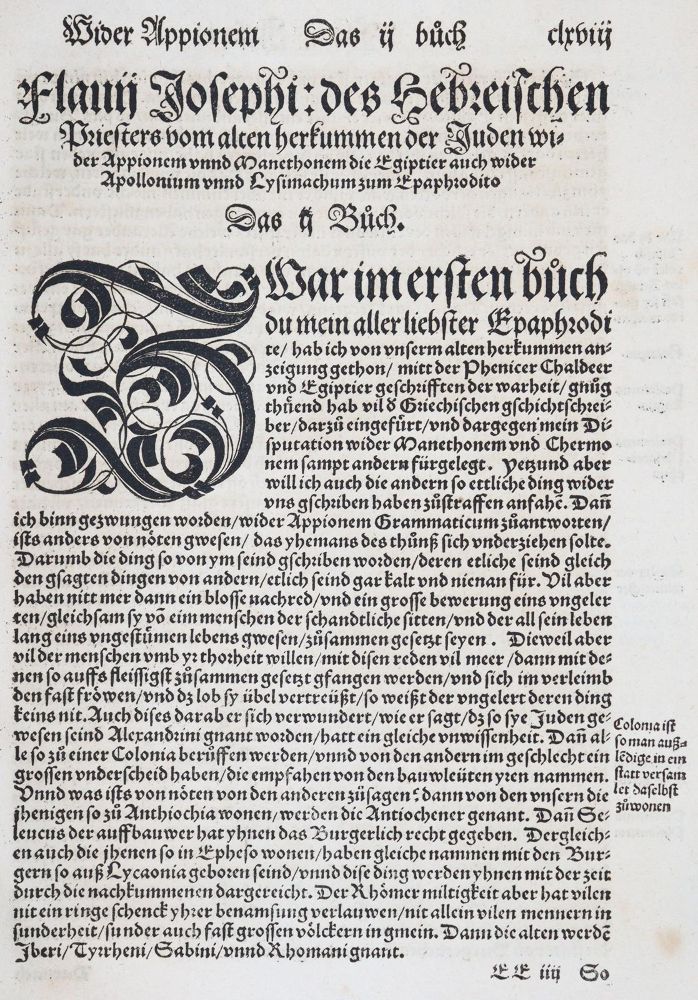 Wider Appionem Das ij bůch clxviij
Flauij Josephi: des Hebreischen
Priesters vom alten herkummen der Juden wi-
der Appionem vnnd Manethonem die Egiptier auch wider
Apollonium vnnd Lysimachum zum Epaphrodito
Das ij Bůch.
War im ersten bůch
du mein aller liebster Epaphrodi
te/ hab ich von vnserm alten herkummen an-
zeigung gethon/ mitt der Phenicer Chaldeer
vnd Egiptier geschrifften der warheit/ gnůg
thůend hab vil d̕ Griechischen gschichtschrei-
ber/ darzů eingefürt/ vnd dargegen mein Di-
sputation wider Manethonem vnd Chermo
nem sampt andern fürgelegt. Yetzund aber
will ich auch die andern so ettliche ding wider
vns gschriben haben zůstraffen anfahē. Dañ
ich binn gezwungen worden/ wider Appionem Grammaticum zůantworten/
ists anders von nöten gwesen/ das yhemans des thůns sich vnderziehen solte.
Darumb die ding so von ym seind gschriben worden/ deren etliche seind gleich
den gsagten dingen von andern/ etlich seind gar kalt vnd nienan für. Vil aber
haben nitt mer dann ein blosse nachred/ vnd ein grosse bewerung eins vngeler
ten/ gleichsam sy vō eim menschen der schandtliche sitten/ vnd der all sein leben
lang eins vngestümen lebens gwesen/ zůsammen gesetzt seyen. Dieweil aber
vil der menschen vmb yr thorheit willen/ mit disen reden vil meer/ dann mit de-
nen so auffs fleissigst zůsammen gesetzt gfangen werden/ vnd sich im verleimb
den fast fröwen/ vnd dz lob sy übel vertreüßt/ so weißt der vngelert deren ding
keins nit. Auch dises darab er sich verwundert/ wie er sagt/ dz so sye Juden ge-
wesen seind Alexandrini gnant worden/ hatt ein gleiche vnwissenheit. Dañ al-
le so zů einer Colonia berůffen werden/ vnnd von den andern im geschlecht ein
grossen vnderscheid haben/ die empfahen von den bauwleüten yren nammen.
Vnnd was ists von nöten von den anderen zůsagen? dann von den vnsern die
jhenigen so zů Anthiochia wonen/ werden die Antiochener genant. Dañ Se-
leucus der auffbauwer hat yhnen das Burgerlich recht gegeben. Dergleich-
en auch die jhenen so in Epheso wonen/ haben gleiche nammen mit den Bur-
gern so auß Lycaonia geboren seind/ vnnd dise ding werden yhnen mit der zeit
durch die nachkummenen dargereicht. Der Rhömer miltigkeit aber hat vilen
nit ein ringe schenck yhrer benamsung verlauwen/ nit allein vilen mennern in
sunderheit/ sunder auch fast grossen völckern in gmein. Dann die alten werdē
Iberi/ Tyrrheni/ Sabini/ vnnd Rhomani gnant.
Colonia ist
so man auß-
lēdige in ein
statt versam
let daselbst
zů wonen
EE iiij So